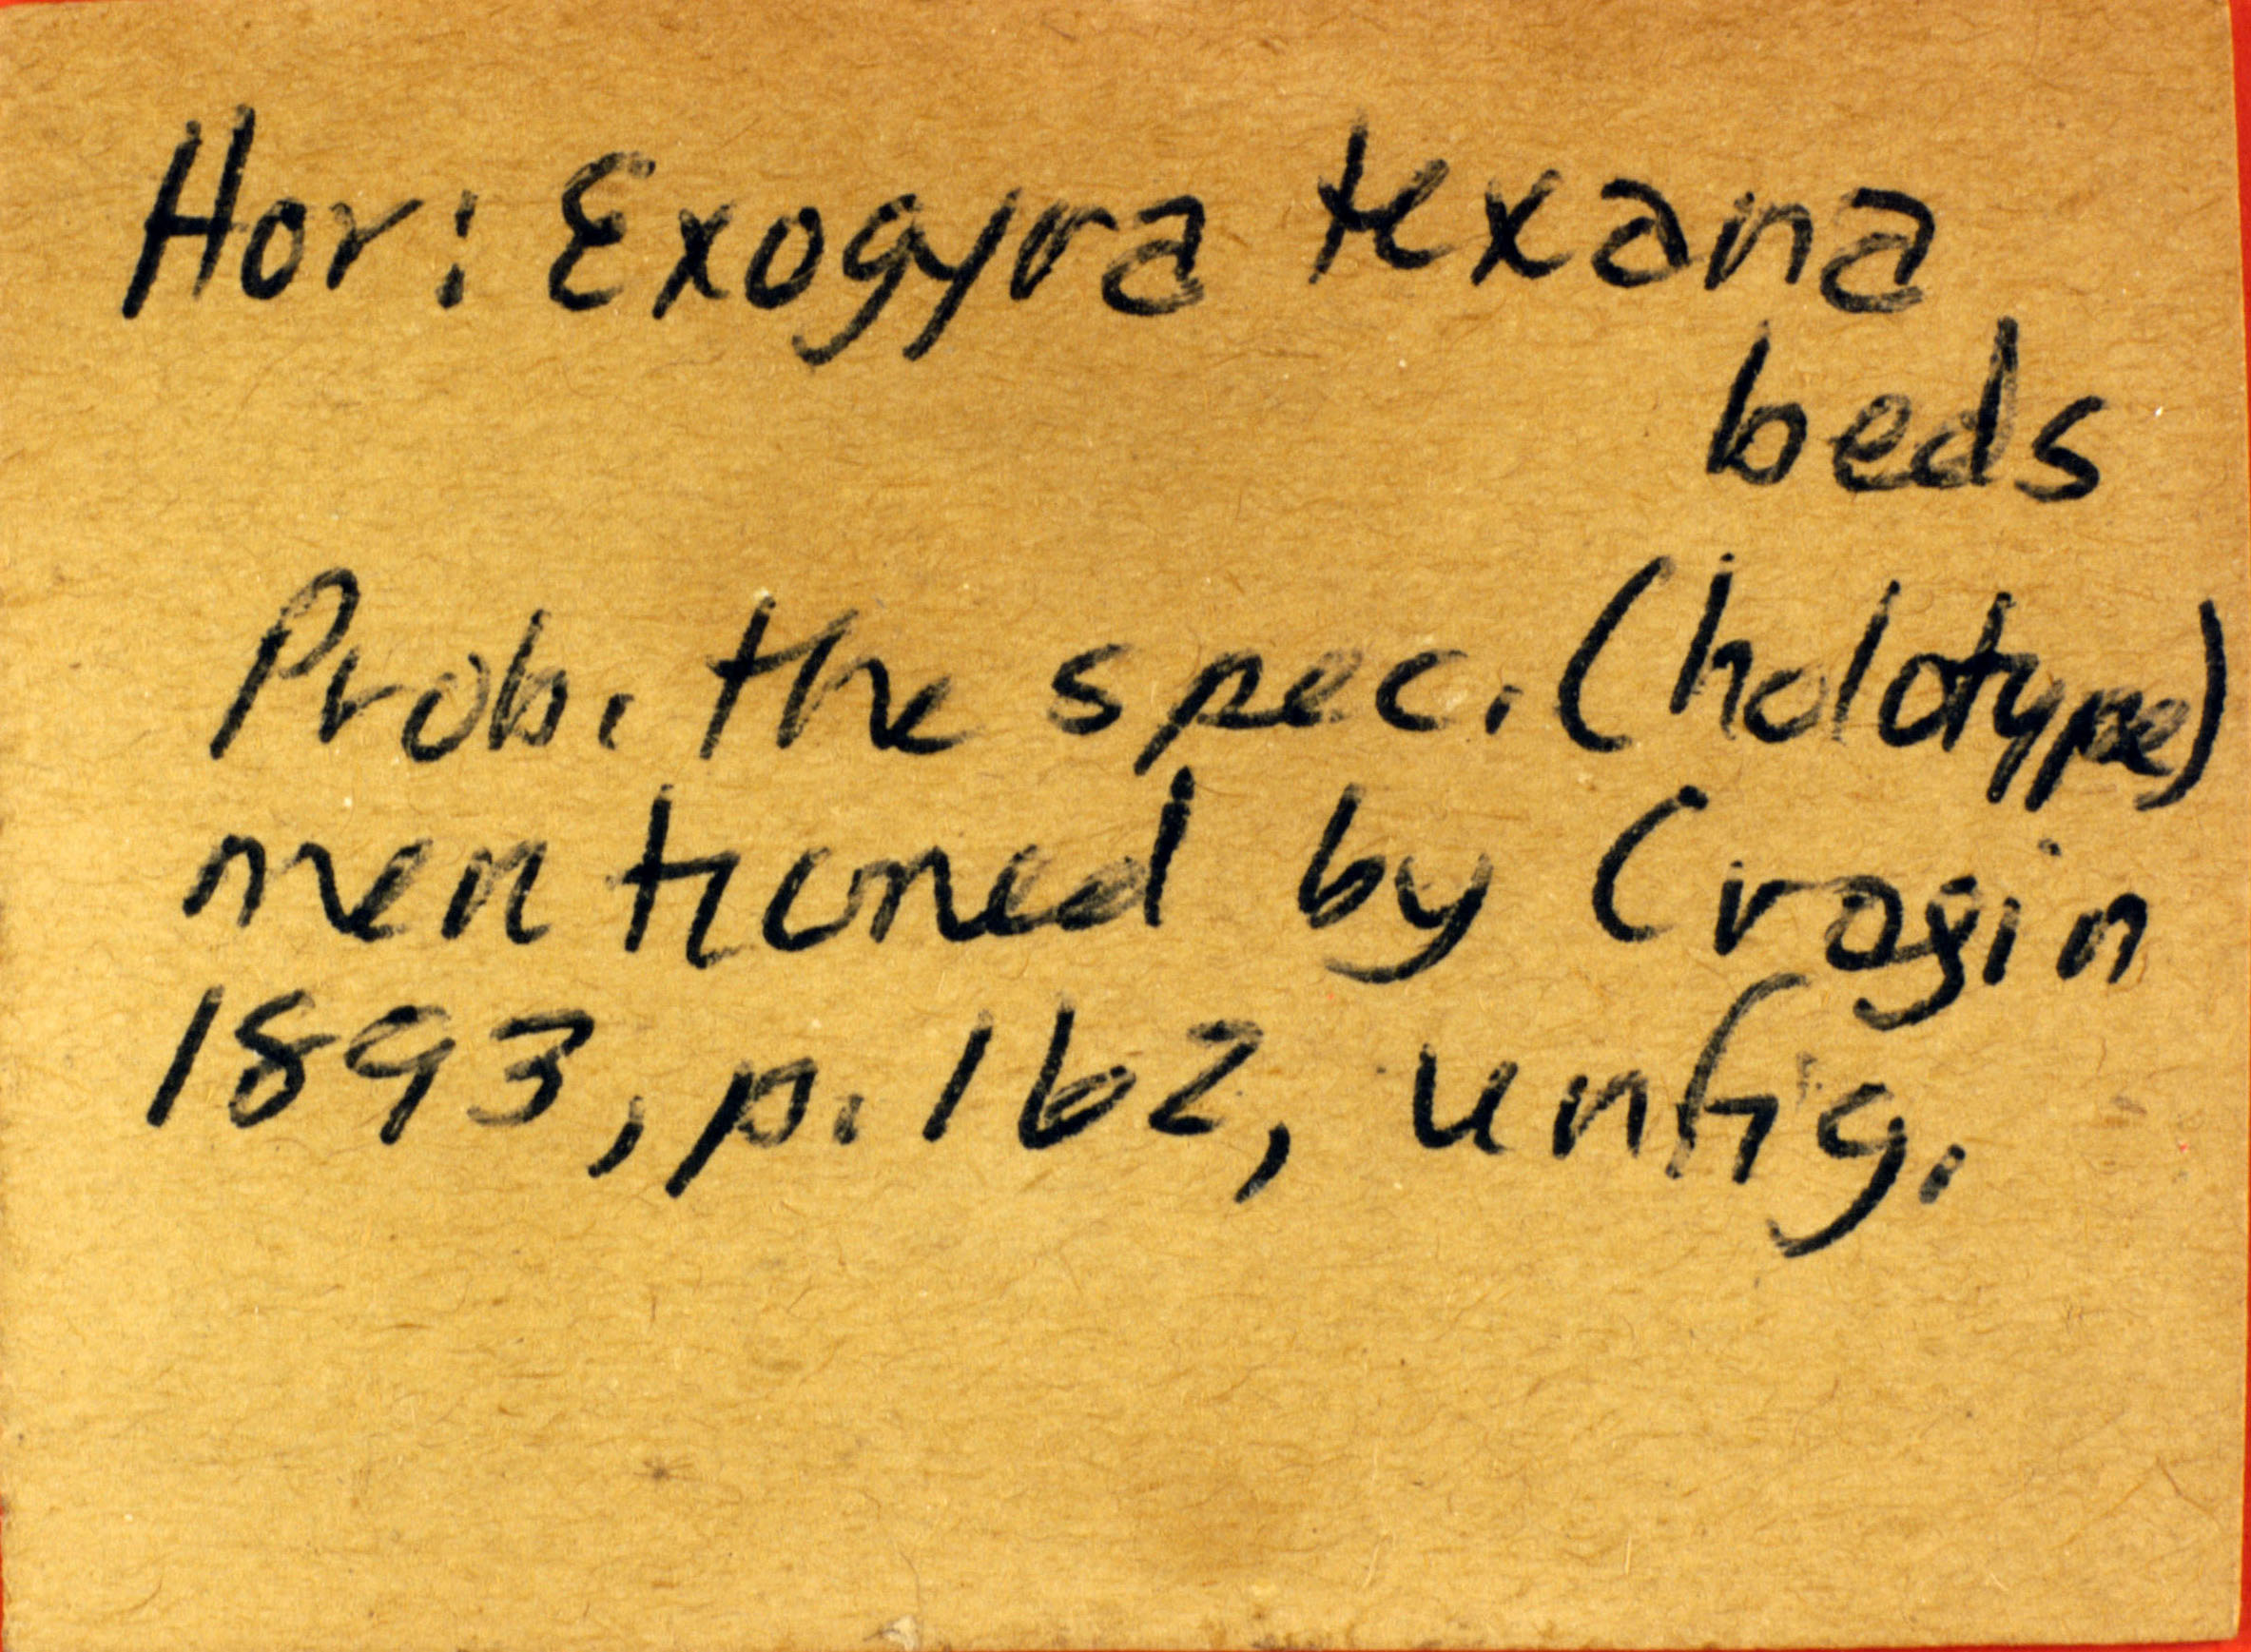 Hor: Exogyra texana
beds
Prob. the spec. (holotype)
mentioned by Cragin
1893, p. 162, unfig.